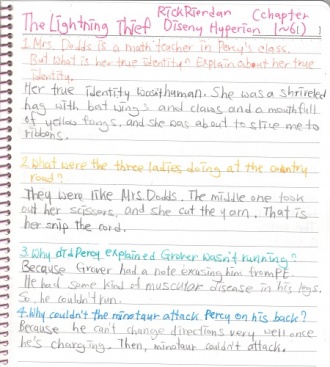 RickRierdan (chapter
The Lightning Thief Diseny Hyperion 1~61)
1. Mrs. Dodds is a math teacher in Percy's class.
But what is her true identity? Explain about her true
identity.
Her true identity wasn't human. She was a shrireled
hag with bat wings and claws and a mouthfull
of yellow fangs, and she was about to slice me to
ribbons.
2. What were the three ladies doing at the country
road?
They were like Mrs. Dodds. The middle one took
out her scissors, and she cut the yarn. That is
her snip the cord.
3. Why did Percy explained Grover wasn't running?
Because Grover had a note excusing him from PE
He had some kind of muscular disease in his legs.
So, he couldn't run.
4. Why couldn't the minotaur attack Percy on his back?
Because he can't change directions very well once
he's changing. Then, minotaur couldn't attack.